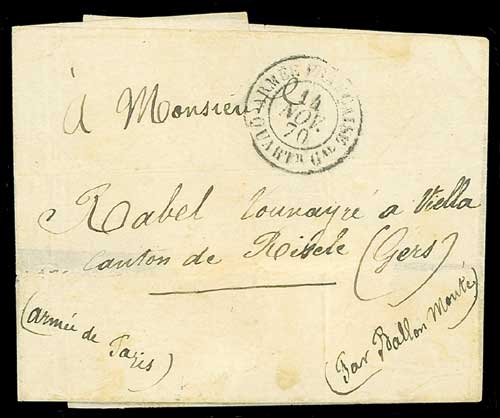 à Monsieur
ARMÉE FRANÇAISE
14
NOV.
70
QUARTR GAL
Rabel à Viella
canton de Riscle (Gers)
(armée de
Paris)
(Par Ballon Monté)